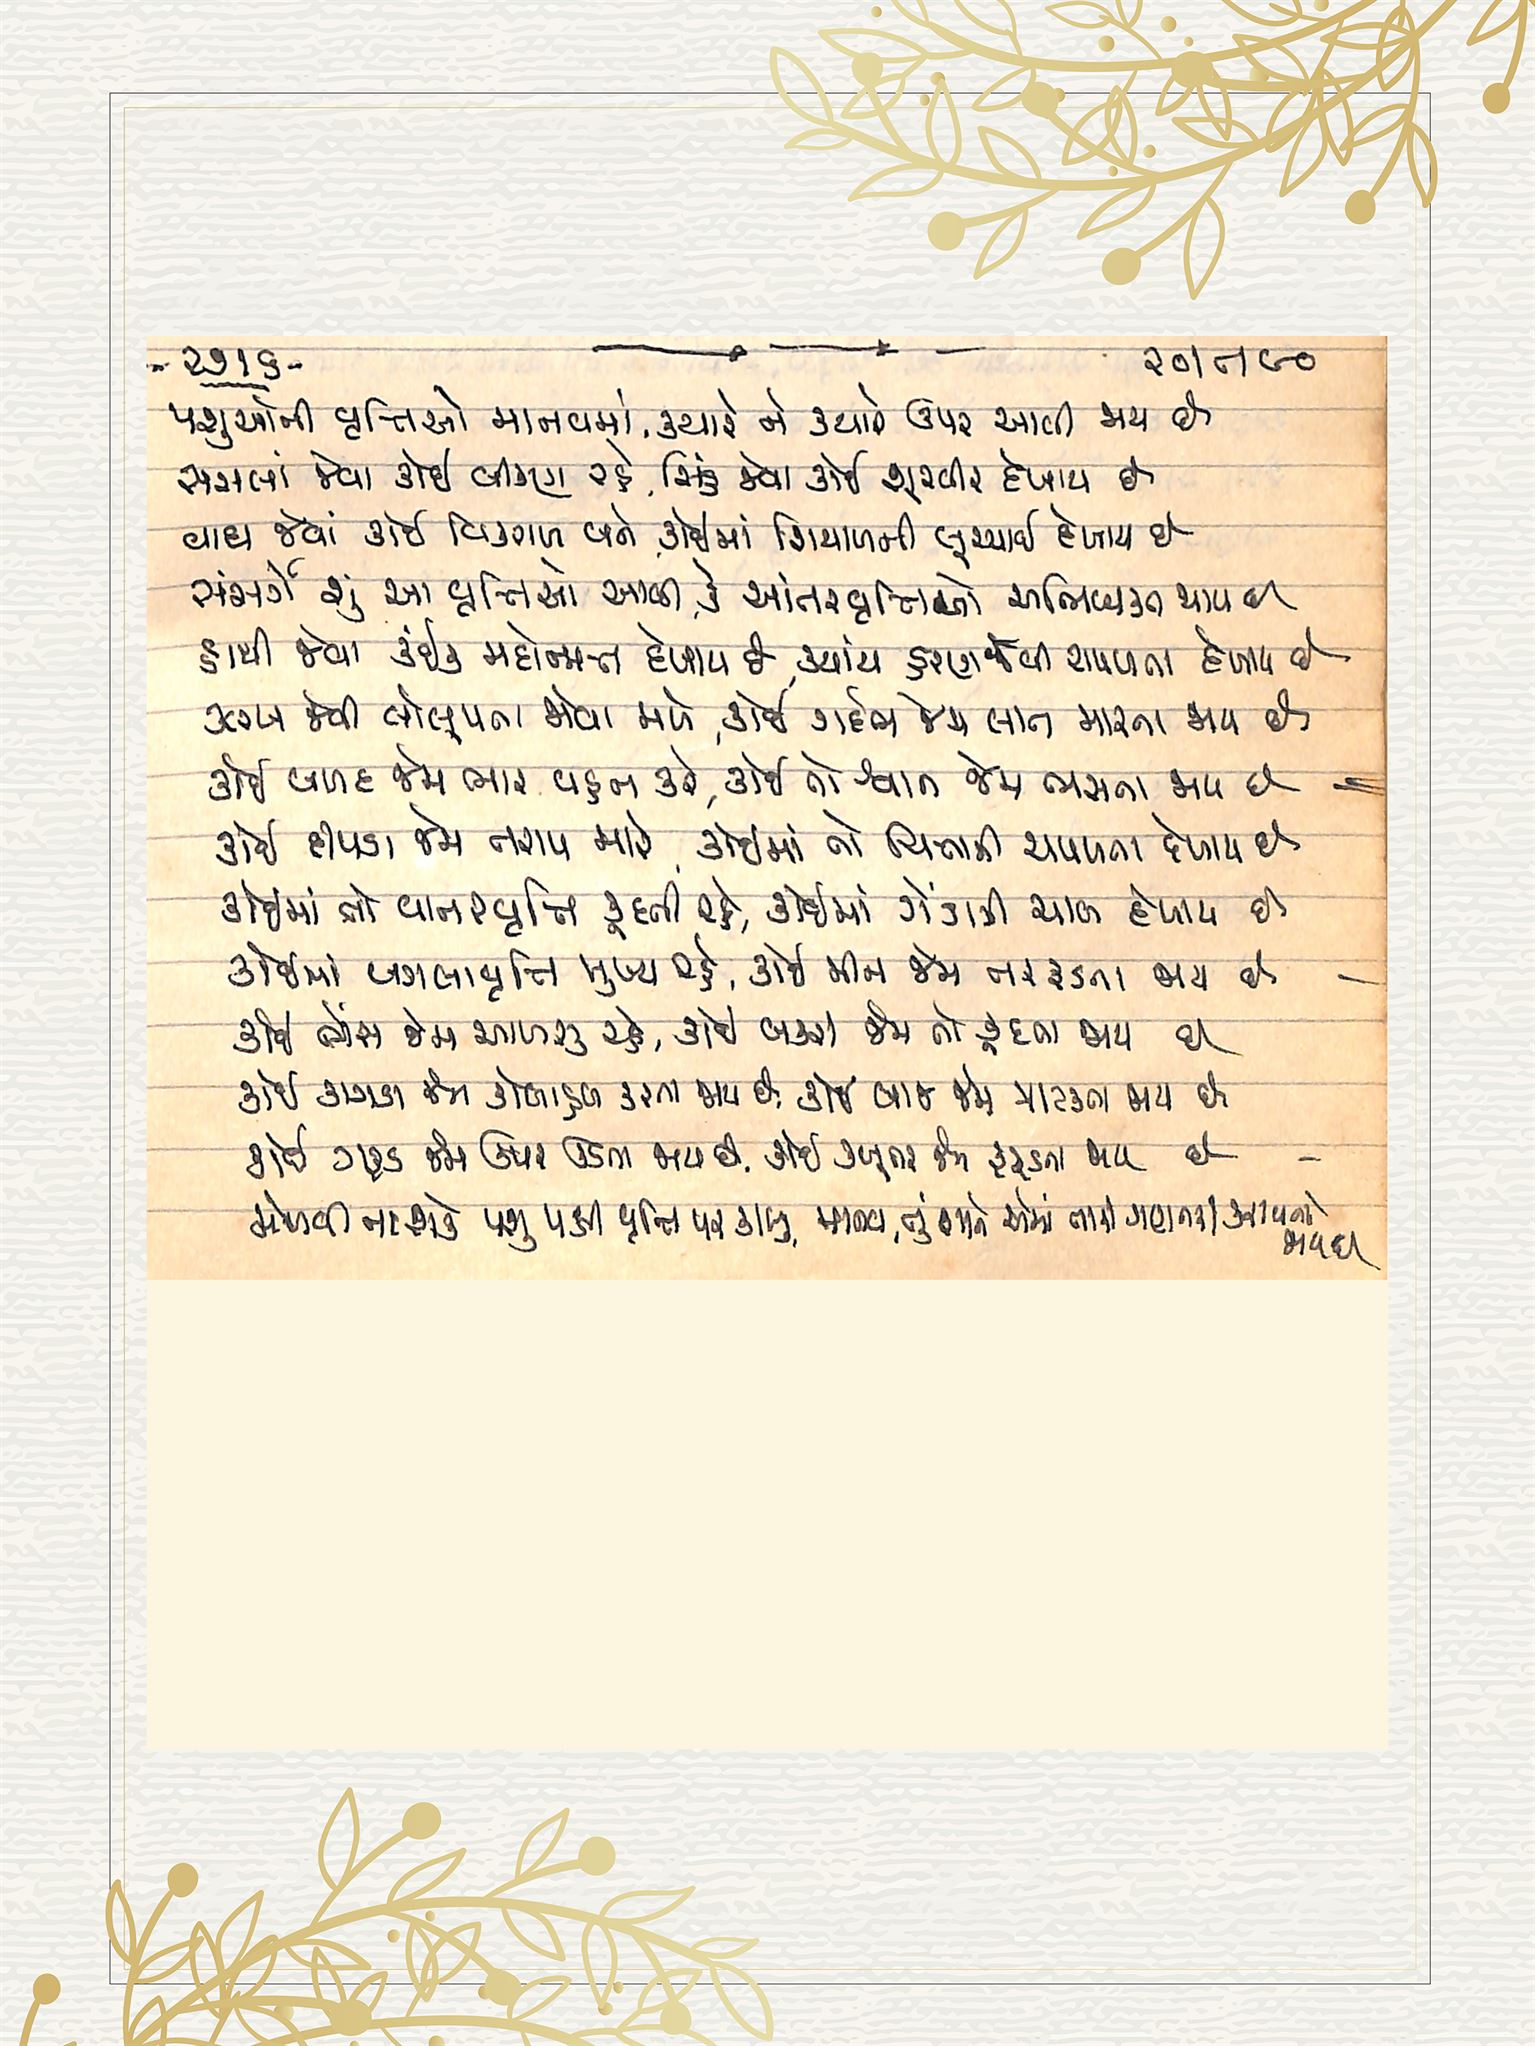 - ૨૭૧૬ - ૨૦।૮।૯૦
પશુઓની વૃત્તિઓ માનવમાં, ક્યારે ને ક્યારે ઉપર આવી જાય છે
સસલાં જેવા કોઈ બીકણ રહે, સિંહ જેવા કોઈ શૂરવીર દેખાય છે
વાઘ જેવાં કોઈ વિકરાળ બને, કોઈમાં શિયાળની લુચ્ચાઈ દેખાય છે
સંસર્ગે શું આ વૃત્તિઓ આવી, કે આંતરવૃત્તિઓ અભિવ્યક્ત થાય છે
હાથી જેવા કંઈક મદોન્મત્ત દેખાય છે, ક્યાંય હરણ જેવી ચપળતા દેખાય છે
જેવી લોલુપતા જોવા મળે, કોઈ ગર્દભ જેમ લાત મારતા જાય છે
કોઈ બળદ જેમ ભાર વહન કરે, કોઈ તો શ્વાન જેમ ભસતા જાય છે =
કોઈ દીપડા જેમ તરાપ મારે, કોઈમાં તો ચિત્તાની ચપળતા દેખાય છે
કોઈમાં તો વાનરવૃત્તિ કૂદતી રહે, કોઈમાં ગેંડાની ચાલ દેખાય છે
કોઈમાં બગલાવૃત્તિ મુખ્ય રહે, કોઈ મીન જેમ તરફડતા જાય છે -
કોઈ ભેંસ જેમ આળસુ રહે, કોઈ બકરા જેમ તો કૂદતા જાય છે
કોઈ કાગડા જેમ કોલાહલ કરતા જાય છે, કોઈ બાજ જેમ ત્રાટકતા જાય છે
કોઈ ગરુડ જેમ ઉપર ઉડતા જાય છે, કોઈ કબૂતર જેમ ફફડતા જાય છે -
મેળવી ના શકે પશુ પક્ષી વૃત્તિ પર કાબુ, માનવ, તું એમાં તારી ગણતરી કરાવતો
જાય છે